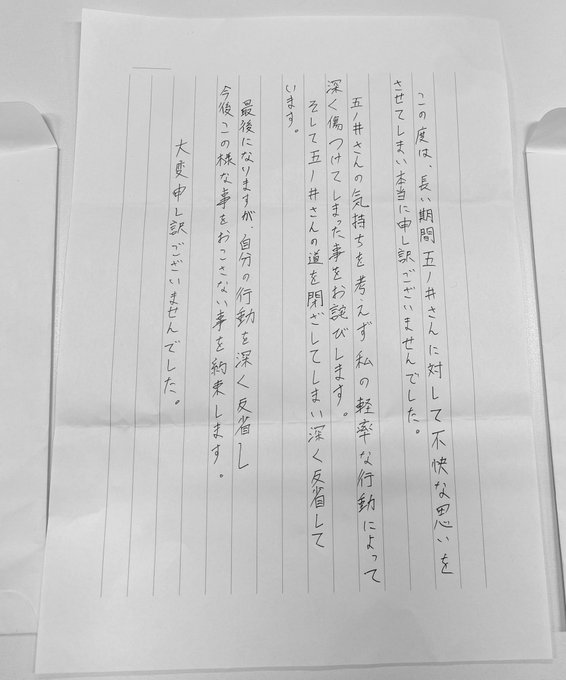 この度は、長い期間五ノ井さんに対して不快な思いを
させてしまい本当に申し訳ございませんでした。
五ノ井さんの気持ちを考えず私の軽率な行動によって
深く傷つけてしまった事をお詫びします。
そして五ノ井さんの道を閉ざしてしまい深く反省して
います。
最後になりますが、自分の行動を深く反省し
今後この様な事をおこさない事を約束します。
大変申し訳ございませんでした。